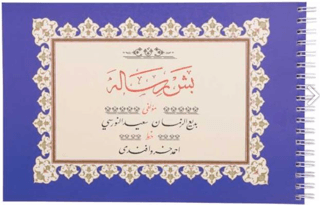 بش رساله
مؤلفى
بديع الزمان سعيد النورسي
خط
احمد خسرو افندى